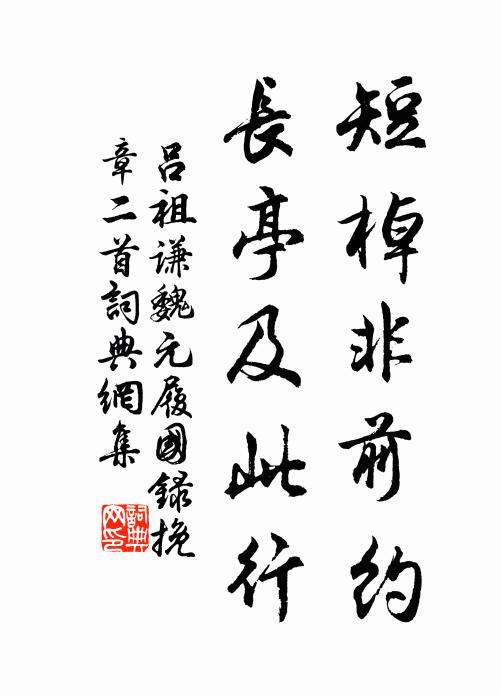 短棹非前約
長亭及此行
呂祖謙魏元履國錄挽
章二首詞典網集
詞典
网印